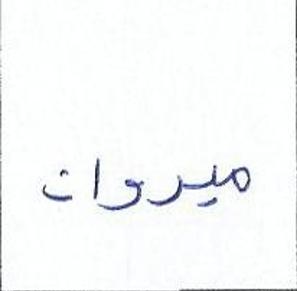 ميروان